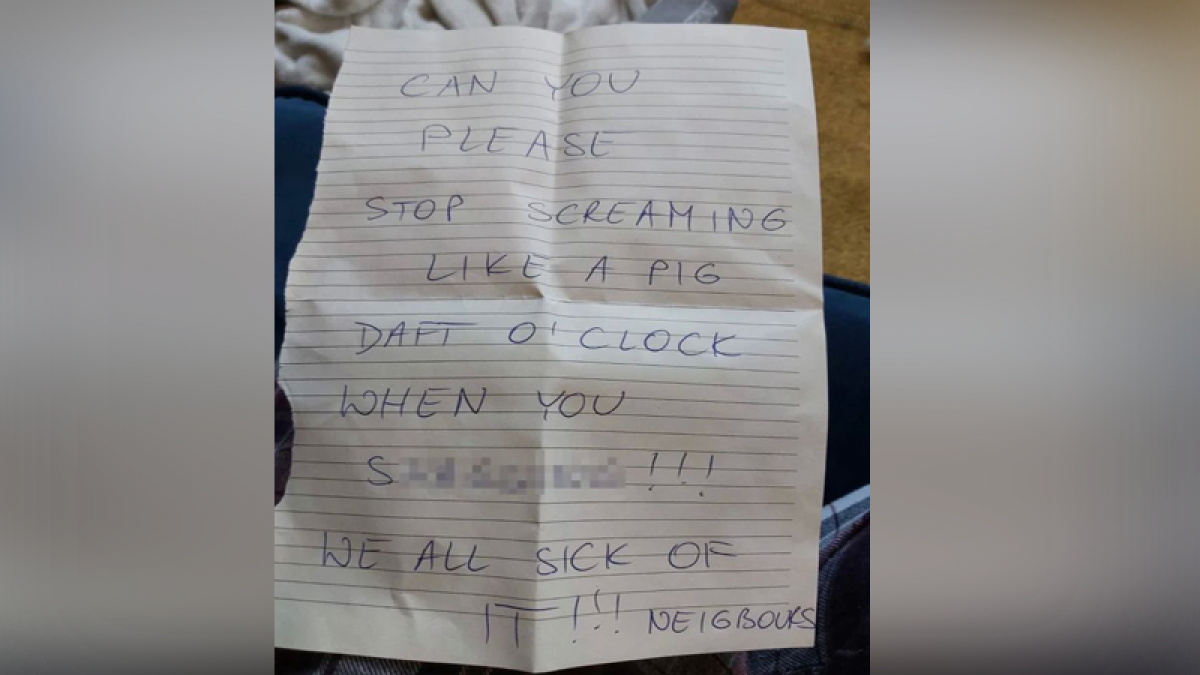 CAN YOU
PLEASE
STOP SCREAMING
LIKE A PIG
DAFT O'CLOCK
WHEN YOU
!!!
WE ALL SICK OF
IT !!! NEIGBOURS